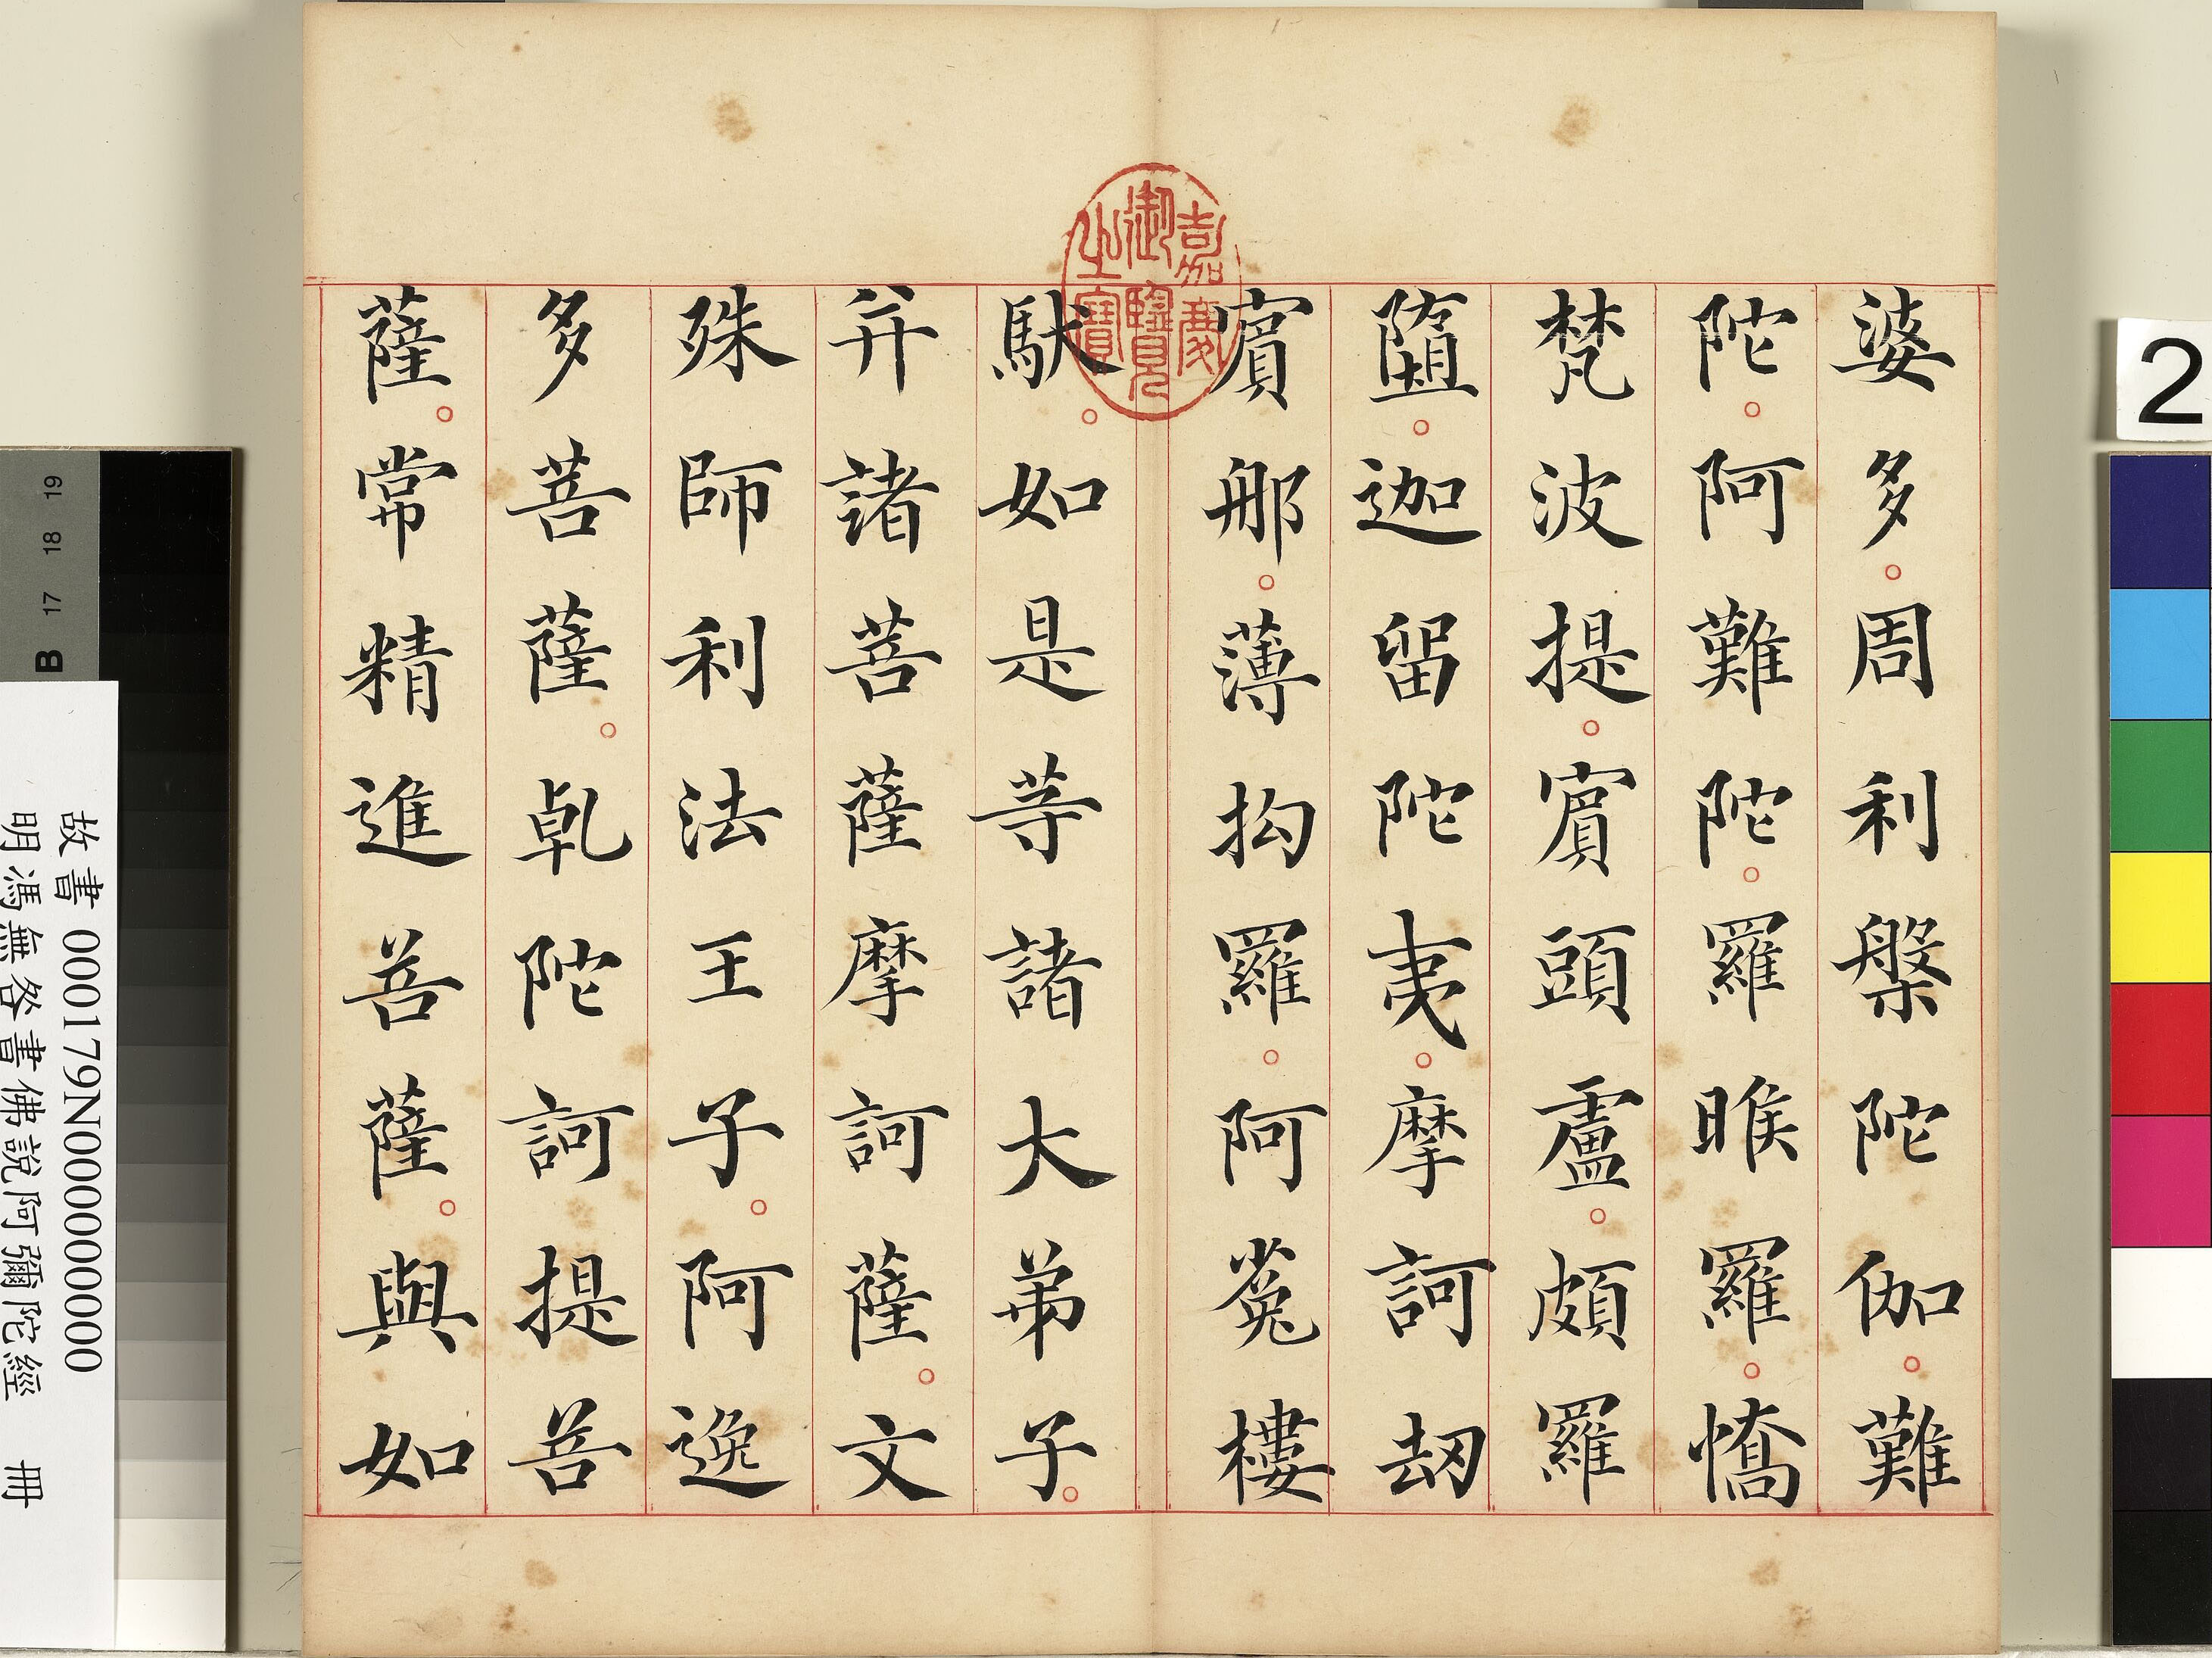 婆多。周利槃陀伽。難
陀。阿難陀。羅睺羅。憍
梵波提。賓頭盧。頗羅
墮。迦留陀夷。摩訶劫
賓那。薄拘羅。阿㝹樓
馱。如是等諸大弟子。
并諸菩薩摩訶薩。文
殊師利法王子。阿逸
多菩薩。乹陀訶提菩
薩。常精進菩薩。與如
嘉慶
御覽
之寶
2
19
18
17
B
故書 000179N000000000
明馮無咎書佛說阿彌陀經 冊